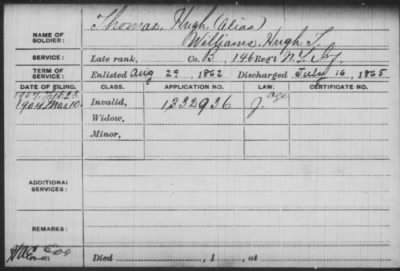 NAME OF SOLDIER: Thomas, Hugh (Alias)
Williams, Hugh T.
SERVICE: Late rank, Co. B, 146 Reg't N.Y. Inf.
TERM OF SERVICE: Enlisted Aug 29, 1862 Discharged July 16, 1865
DATE OF FILING. CLASS. APPLICATION NO. LAW. CERTIFICATE NO.
1904 Mar 10. Invalid, 1332936 J.
Widow,
Minor,
ADDITIONAL SERVICES:
REMARKS:
Died , 1 , at